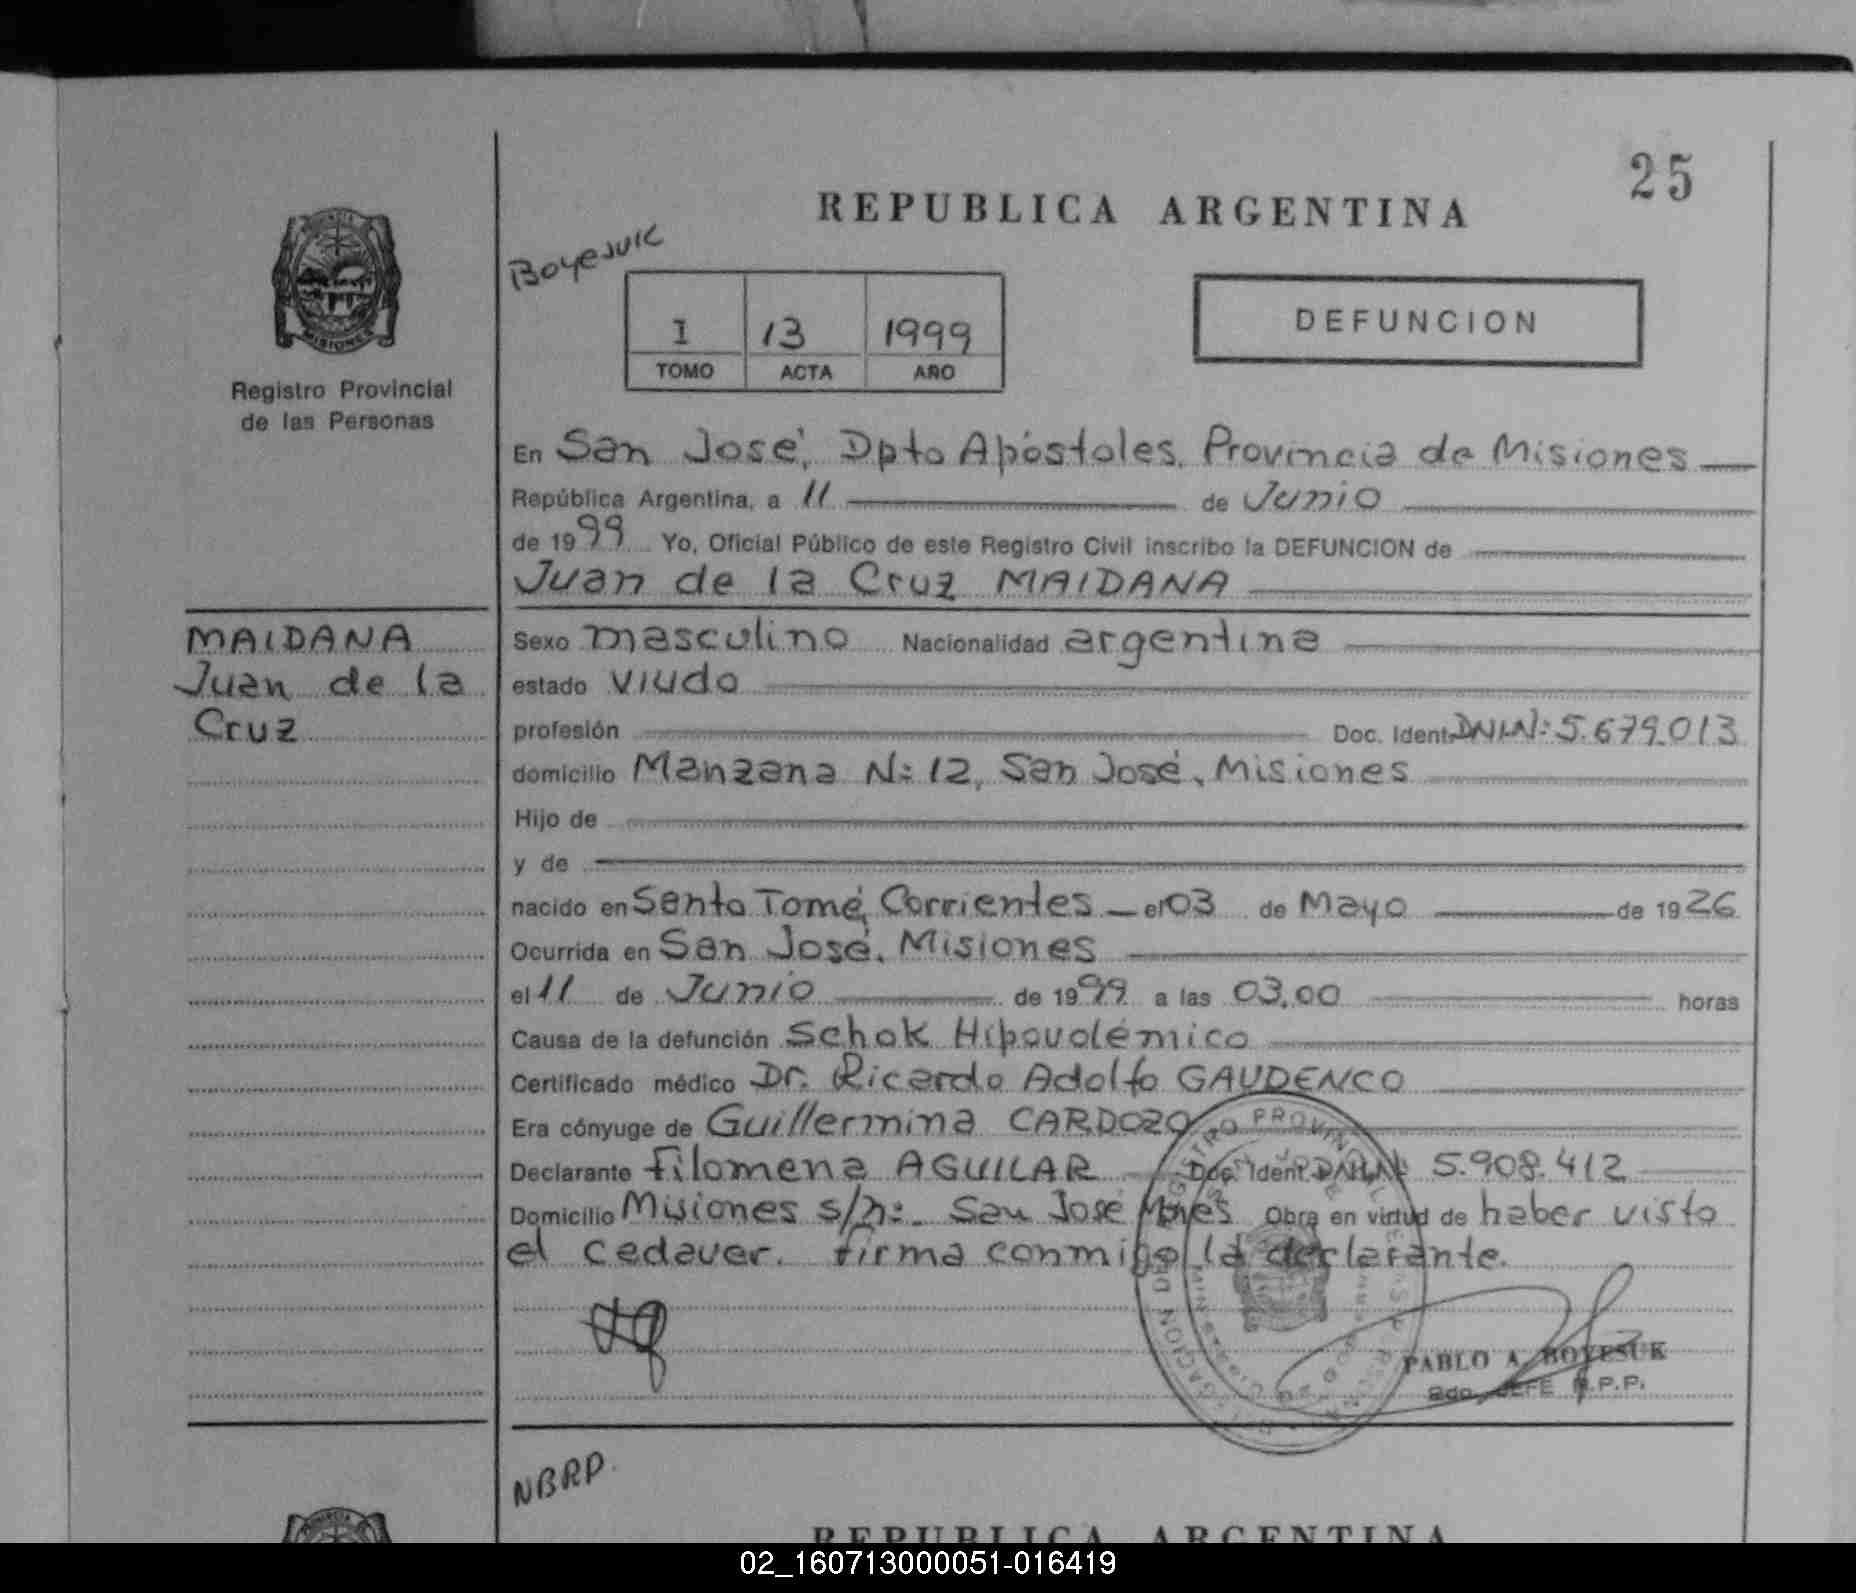 25
REPUBLICA ARGENTINA
Boyesuk
PROVINCIA
MISIONES
Registro Provincial
de las Personas
I 13 1999
TOMO ACTA AÑO
DEFUNCION
En San José, Dpto Apóstoles, Provincia de Misiones
República Argentina, a 11 de Junio
de 1999 Yo, Oficial Público de este Registro Civil inscribo la DEFUNCION de
Juan de la Cruz MAIDANA
MAIDANA
Juan de la
Cruz
Sexo masculino Nacionalidad argentina
estado viudo
profesión Doc. Ident. DNI.Nº: 5.679.013
domicilio Manzana Nº 12, San José, Misiones
Hijo de
y de
nacido en Santo Tomé, Corrientes el 03 de Mayo de 1926
Ocurrida en San José, Misiones
el 11 de Junio de 1999 a las 03,00 horas
Causa de la defunción Schok Hipovolémico
Certificado médico Dr. Ricardo Adolfo GAUDENCO
Era cónyuge de Guillermina CARDOZO
Declarante Filomena AGUILAR Doc. Ident. DNI.Nº 5.908.412
Domicilio Misiones s/nº. San José Mnes Obra en virtud de haber visto
el cadaver. Firma conmigo la declarante.
PABLO A. BOYESUK
2do. JEFE R.P.P.
NBRP.
REPUBLICA ARGENTINA
02_160713000051-016419